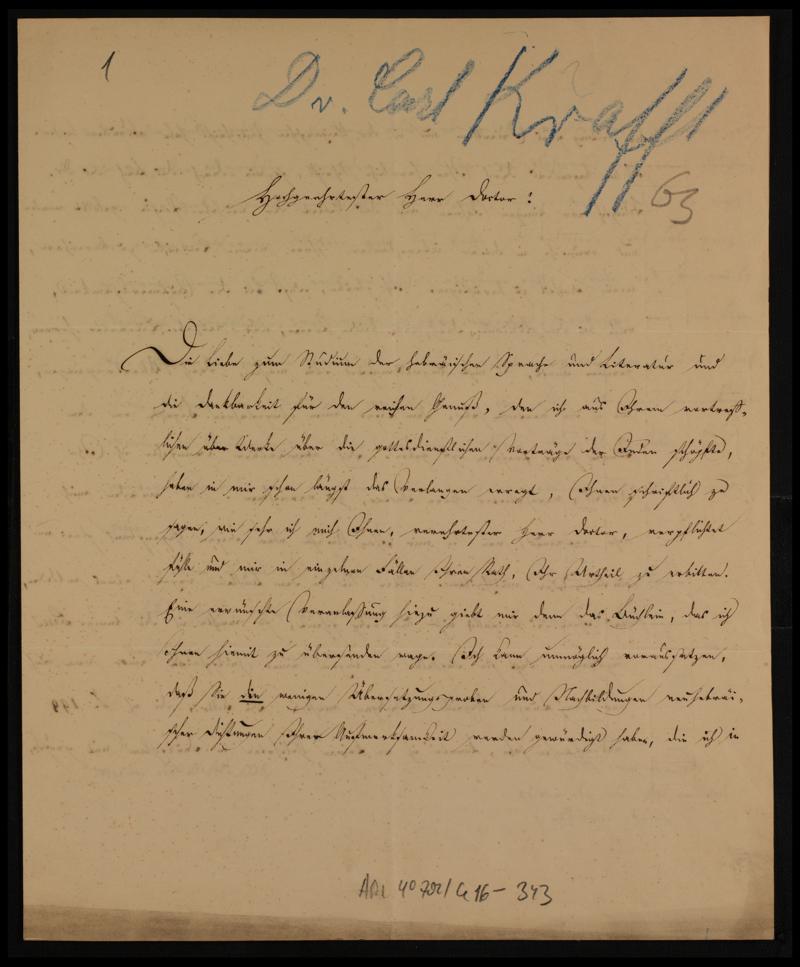 1
Dr. Carl Krafft
63
Hochgeehrtester Herr Doctor!
Die Liebe zum Studium der hebräischen Sprache und Literatur und
die Dankbarkeit für den reichen Genuß, den ich aus Ihrem vortreff-
lichen Werke über die gottesdienstlichen Vorträge der Juden schöpfte,
haben in mir schon längst das Verlangen erregt, Ihnen schriftlich zu
sagen, wie sehr ich mich Ihnen, verehrtester Herr Doctor, verpflichtet
fühle und mir in einzelnen Fällen Ihren Rath, Ihr Urtheil zu erbitten.
Eine erwünschte Veranlassung hiezu giebt mir denn das Büchlein, das ich
Ihnen hiemit zu übersenden wage. Ich kann unmöglich voraussetzen,
daß Sie die wenigen Übersetzungsproben und Nachbildungen neuhebräi-
scher Dichtungen Ihrer Aufmerksamkeit werden gewürdigt haben, die ich in
ARC 4° 792/G 16 - 343